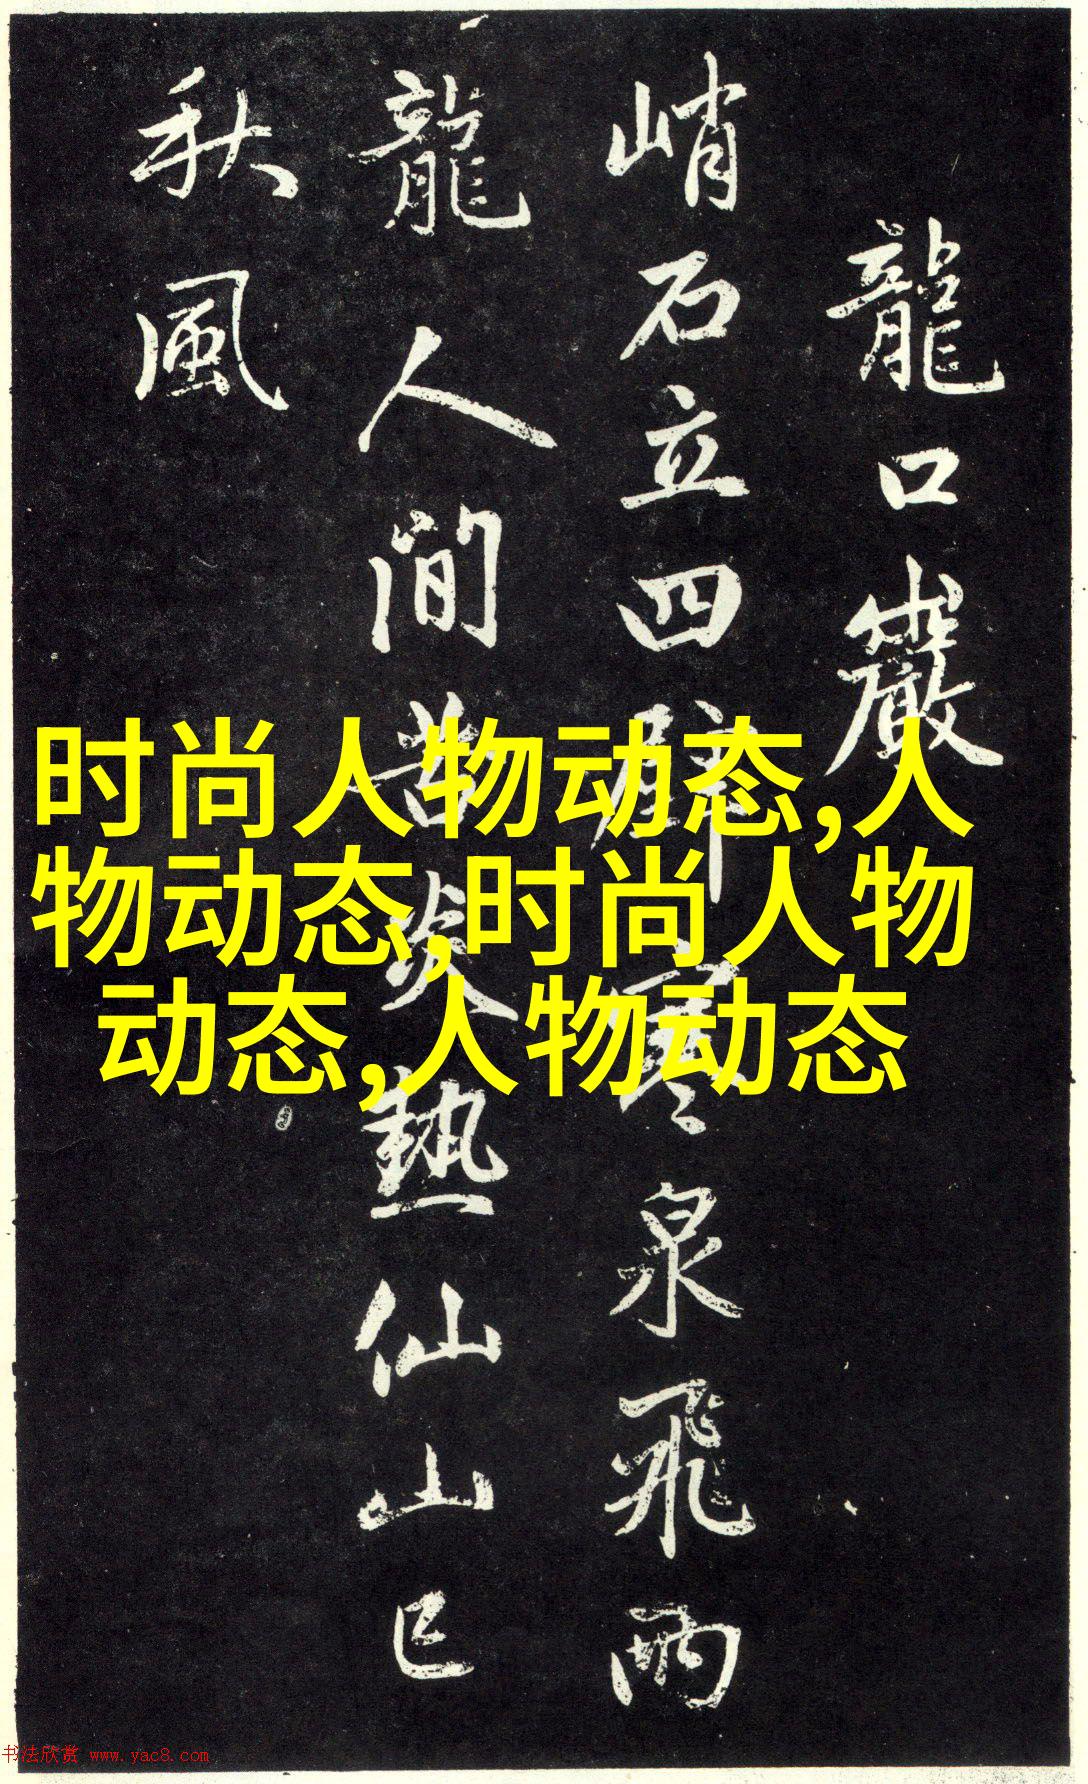 龍口巖
峭石立四壁寒泉飛兩
龍人間苦炎熱仙山已
秋風
时尚人物动态,人
物动态,时尚人物
动态,人物动态
书法欣赏 www.yac8.com